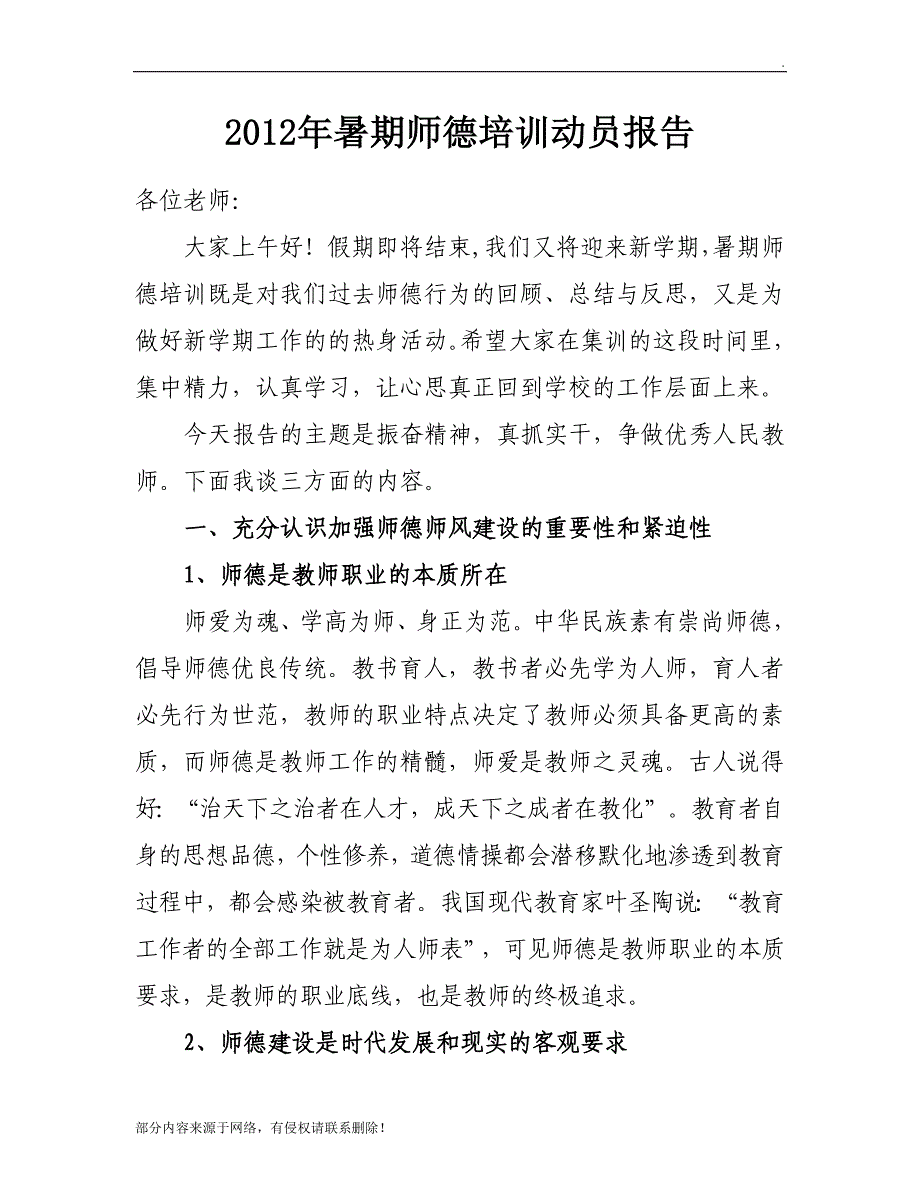 2012年暑期师德培训动员报告
各位老师：
大家上午好！假期即将结束,我们又将迎来新学期,暑期师
德培训既是对我们过去师德行为的回顾、总结与反思，又是为
做好新学期工作的的热身活动。希望大家在集训的这段时间里，
集中精力，认真学习，让心思真正回到学校的工作层面上来。
今天报告的主题是振奋精神，真抓实干，争做优秀人民教
师。下面我谈三方面的内容。
一、充分认识加强师德师风建设的重要性和紧迫性
1、师德是教师职业的本质所在
师爱为魂、学高为师、身正为范。中华民族素有崇尚师德，
倡导师德优良传统。教书育人，教书者必先学为人师，育人者
必先行为世范，教师的职业特点决定了教师必须具备更高的素
质，而师德是教师工作的精髓，师爱是教师之灵魂。古人说得
好：“治天下之治者在人才，成天下之成者在教化”。教育者自
身的思想品德，个性修养，道德情操都会潜移默化地渗透到教育
过程中，都会感染被教育者。我国现代教育家叶圣陶说：“教育
工作者的全部工作就是为人师表”，可见师德是教师职业的本质
要求，是教师的职业底线，也是教师的终极追求。
2、师德建设是时代发展和现实的客观要求
部分内容来源于网络，有侵权请联系删除！